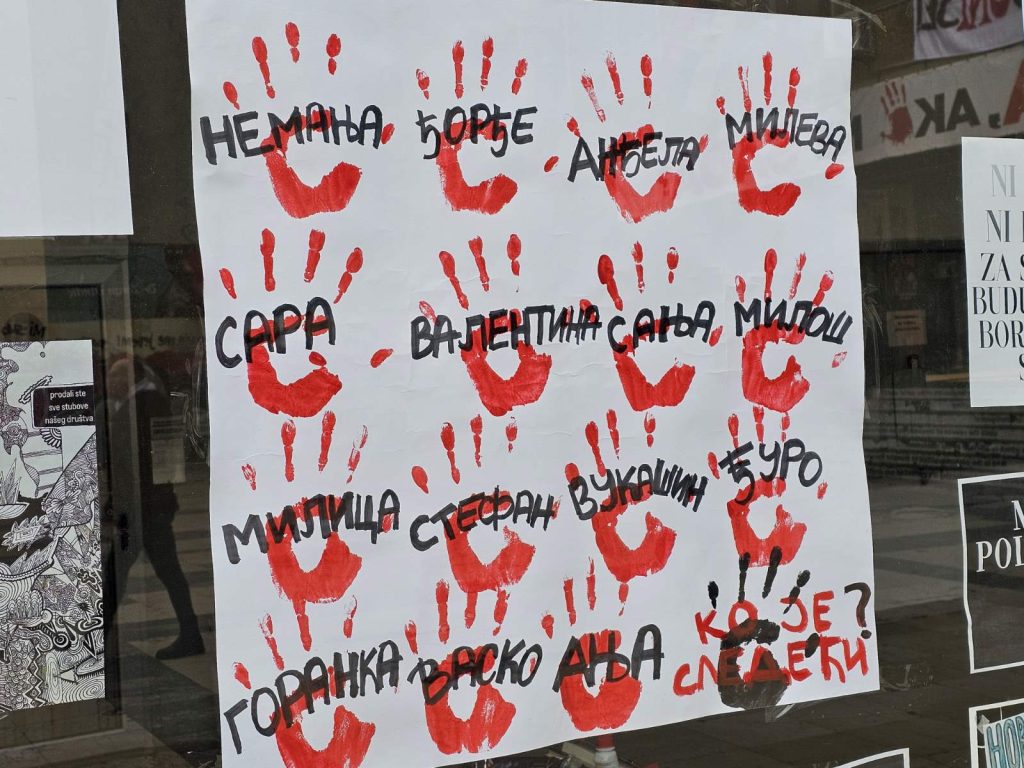 НЕМАЊА ЂОРЂЕ АНЂЕЛА МИЛЕВА
САРА ВАЛЕНТИНА САЊА МИЛОШ
МИЛИЦА СТЕФАН ВУКАШИН ЂУРО
ГОРАНКА ВАСКО АЊА
КО ЈЕ ?
СЛЕДЕЋИ
prodali ste
sve stubove
našeg društva
NI
NI
ZA